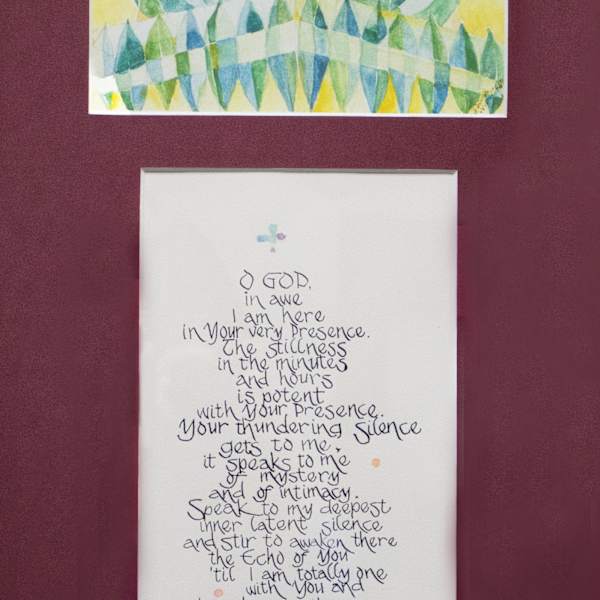 O GOD,
in awe
I am here
in Your very Presence.
The stillness
in the minutes
and hours
is potent
with Your Presence.
Your thundering Silence
gets to me,
it speaks to me
of mystery
and of intimacy.
Speak to my deepest
inner latent silence
and stir to awaken there
the Echo of You
'til I am totally one
with You and